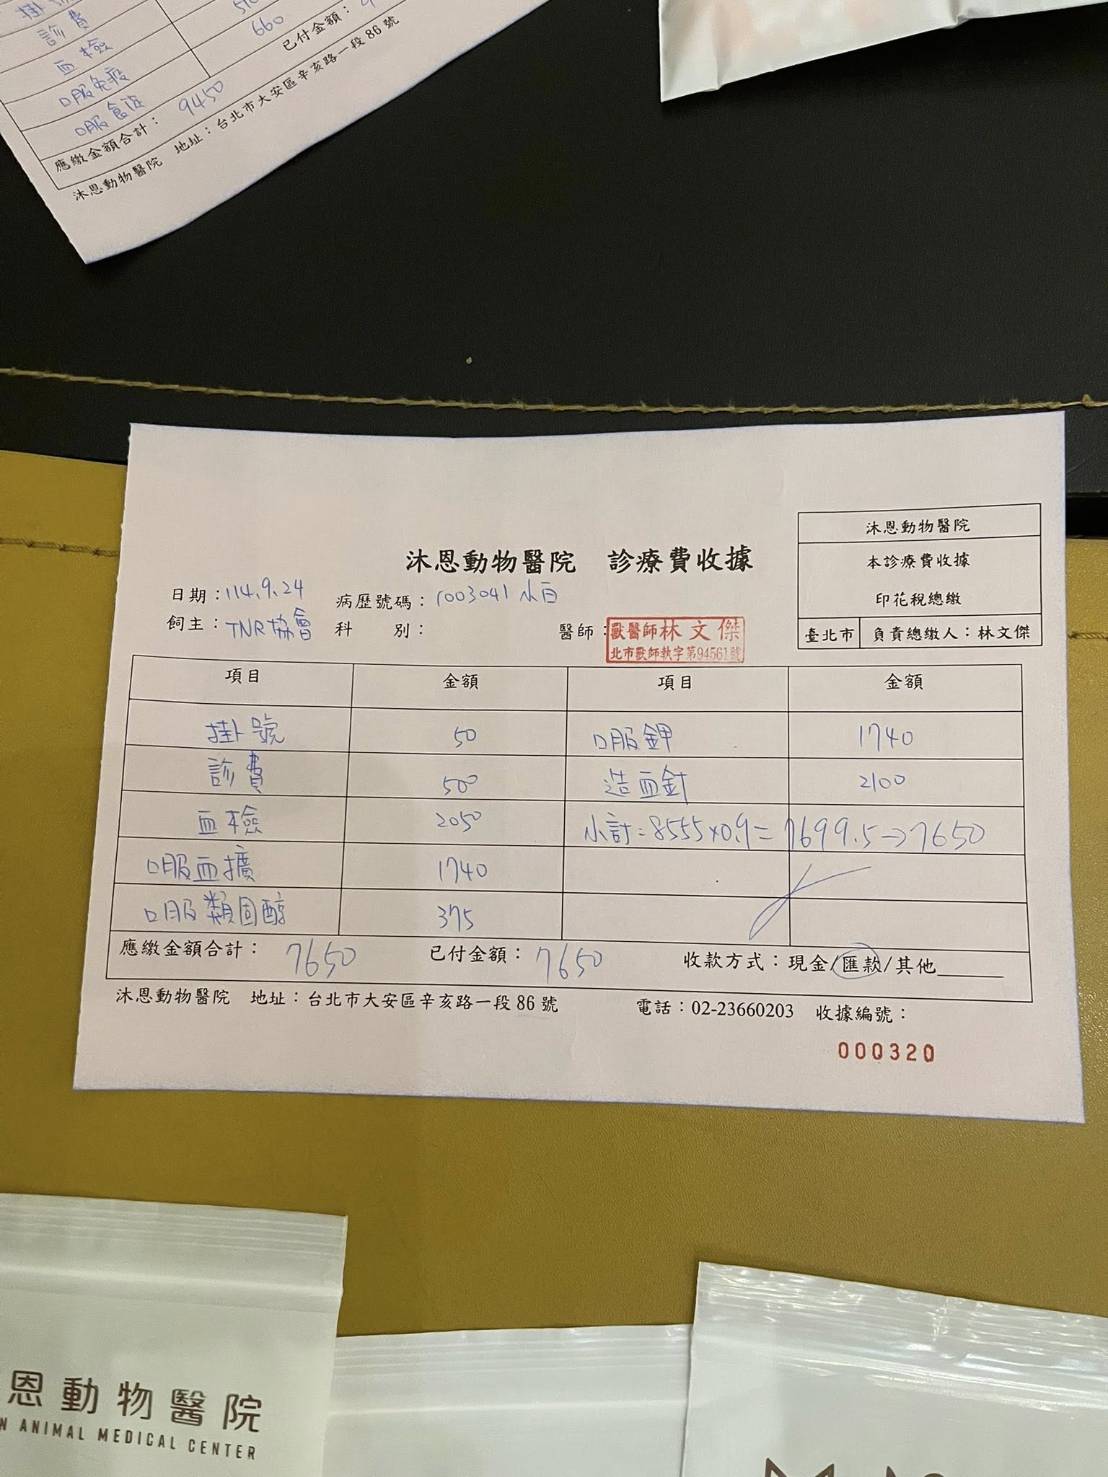 診費
血檢
口服免疫
660
已付金額：
應繳金額合計： 9450
沐恩動物醫院 地址：台北市大安區辛亥路一段 86 號
沐恩動物醫院 診療費收據
沐恩動物醫院
本診療費收據
印花稅總繳
臺北市 負責總繳人：林文傑
日期：114.9.24 病歷號碼：1003041 小白
飼主：TNR協會 科 別： 醫師：獸醫師林文傑
北市獸師執字第94561號
項目 金額 項目 金額
掛號 50 口服鉀 1740
診費 500 造血針 2100
血檢 2050 小計：8555x0.9=7699.5→7650
口服血擴 1740
口服類固醇 375
應繳金額合計： 7650 已付金額：7650 收款方式：現金/匯款/其他
沐恩動物醫院 地址：台北市大安區辛亥路一段 86 號 電話：02-23660203 收據編號：
000320
恩動物醫院
N ANIMAL MEDICAL CENTER